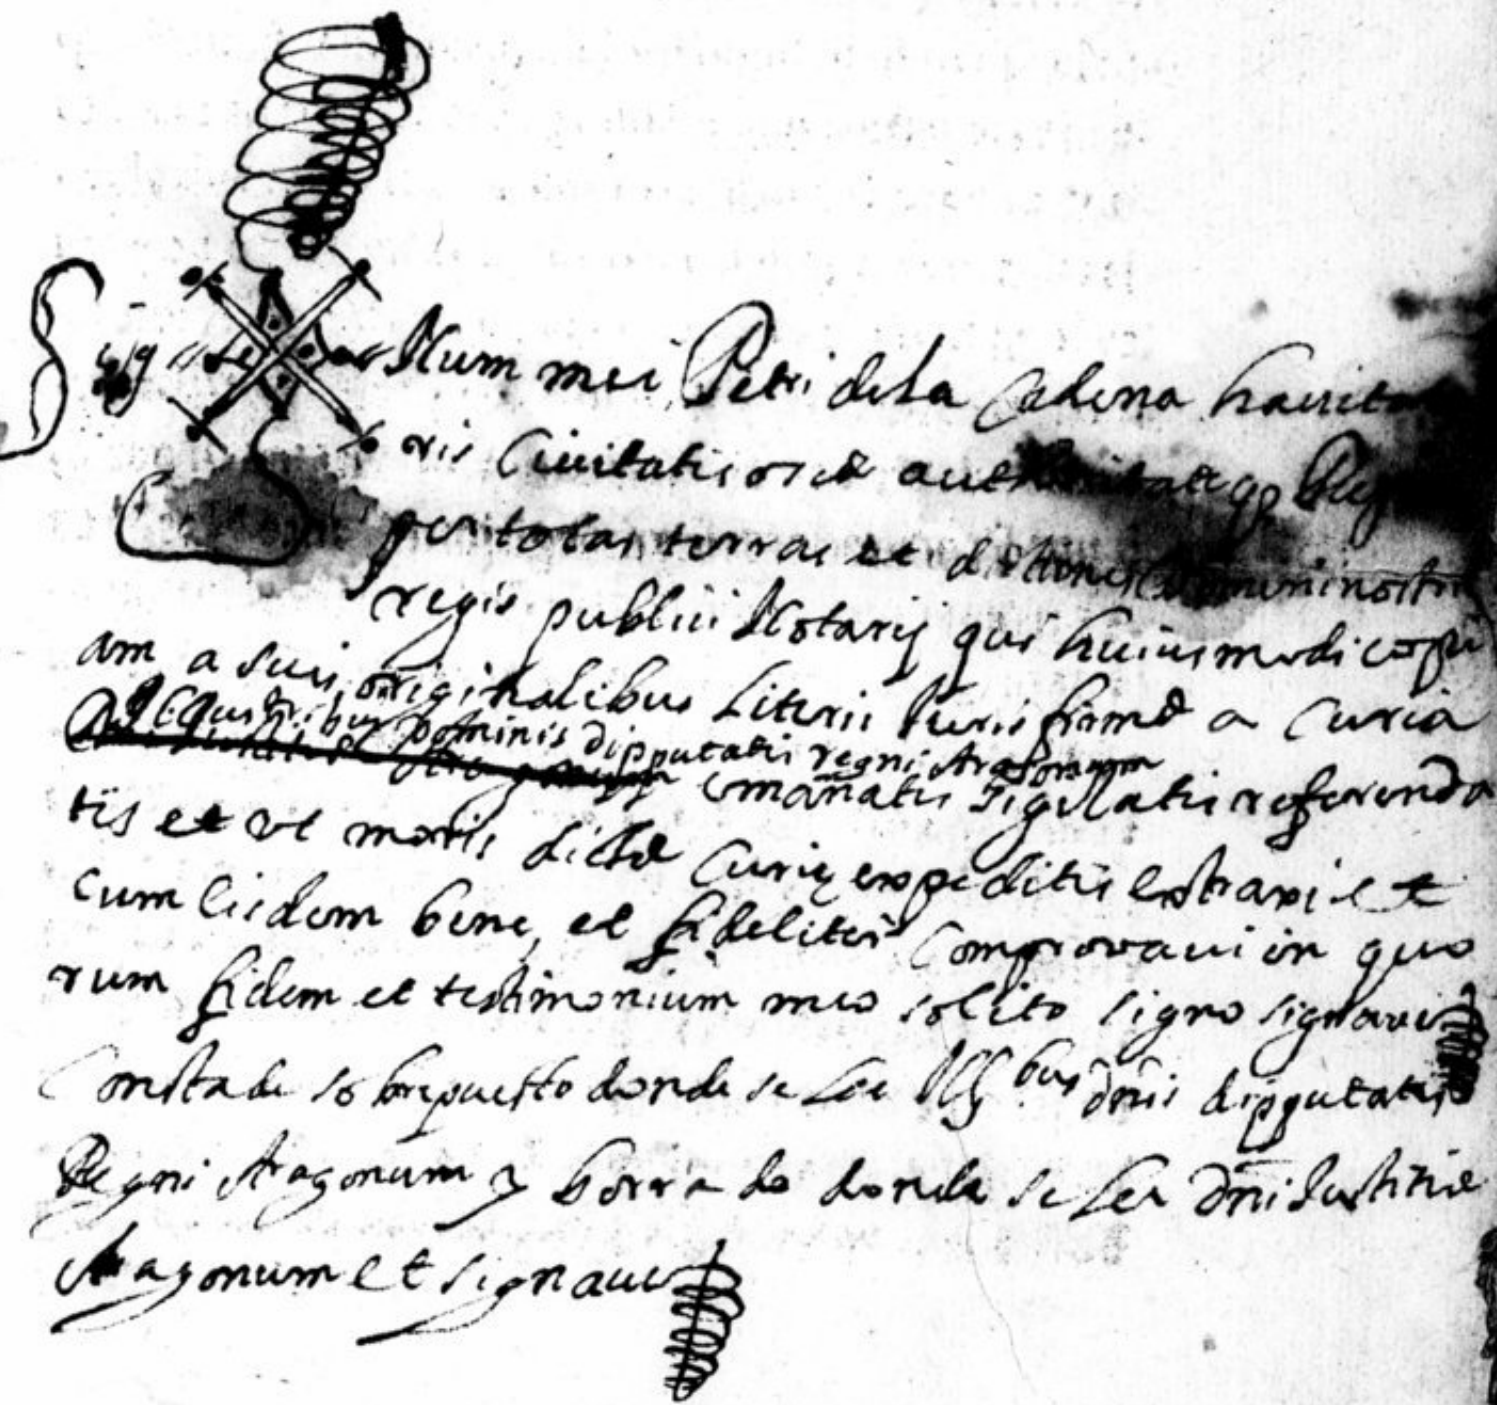 Sig num mei Petri de La Cadena havita
ris Civitatis oscæ authoritate qe Reg
per totas terras et ditiones Domini nostri
regis publici Notarij qui huiusmodi copi
am a suis originalibus Literis Jurisfirmæ a Curia
Illustribus Dominis dipputatis regni Aragonum
emanatis sigillatis referenda
tis et ut moris dictæ Curię expeditis extraxi et
cum eisdem bene, et fideliter comprovavi in quo
rum fidem et testimonium meo solito signo signavi
Consta de sobrepuesto donde se Lee Illbus dnis dipputatis
Regni Aragonum y borrado donde se Lee dni Justitiæ
Aragonum et signavi